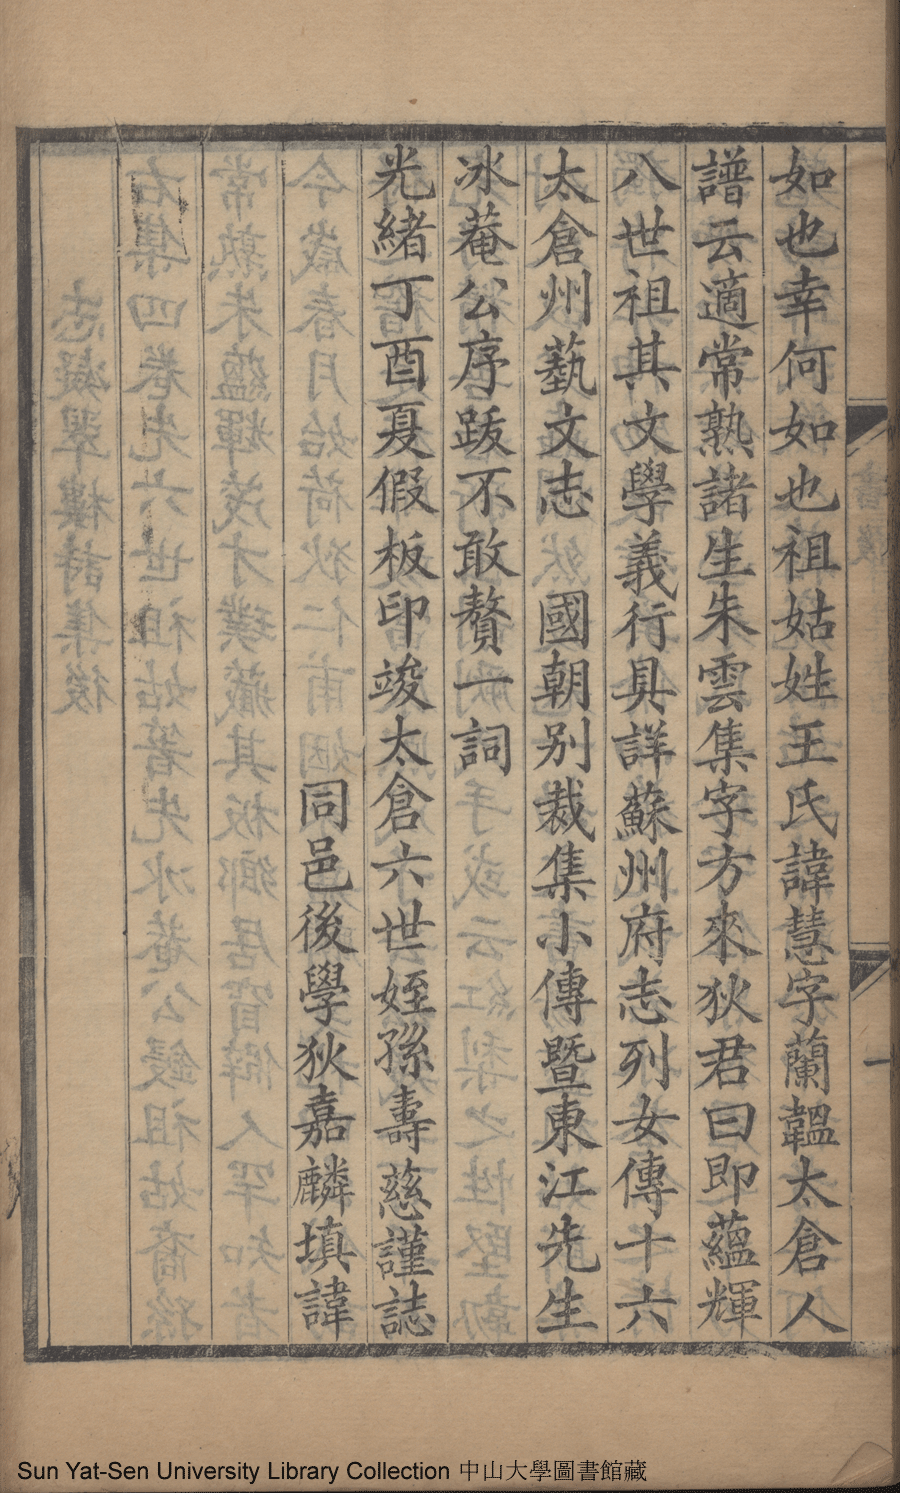 如也幸何如也祖姑姓王氏諱慧字蘭韞太倉人
譜云適常熟諸生朱雲集字方來狄君曰即蘊輝
八世祖其文學義行具詳蘇州府志列女傳十六
太倉州藝文志 國朝別裁集小傳暨東江先生
冰菴公序跋不敢贅一詞
光緒丁酉夏假板印竣太倉六世姪孫壽慈謹誌
同邑後學狄嘉麟填諱
一
Sun Yat-Sen University Library Collection 中山大學圖書館藏